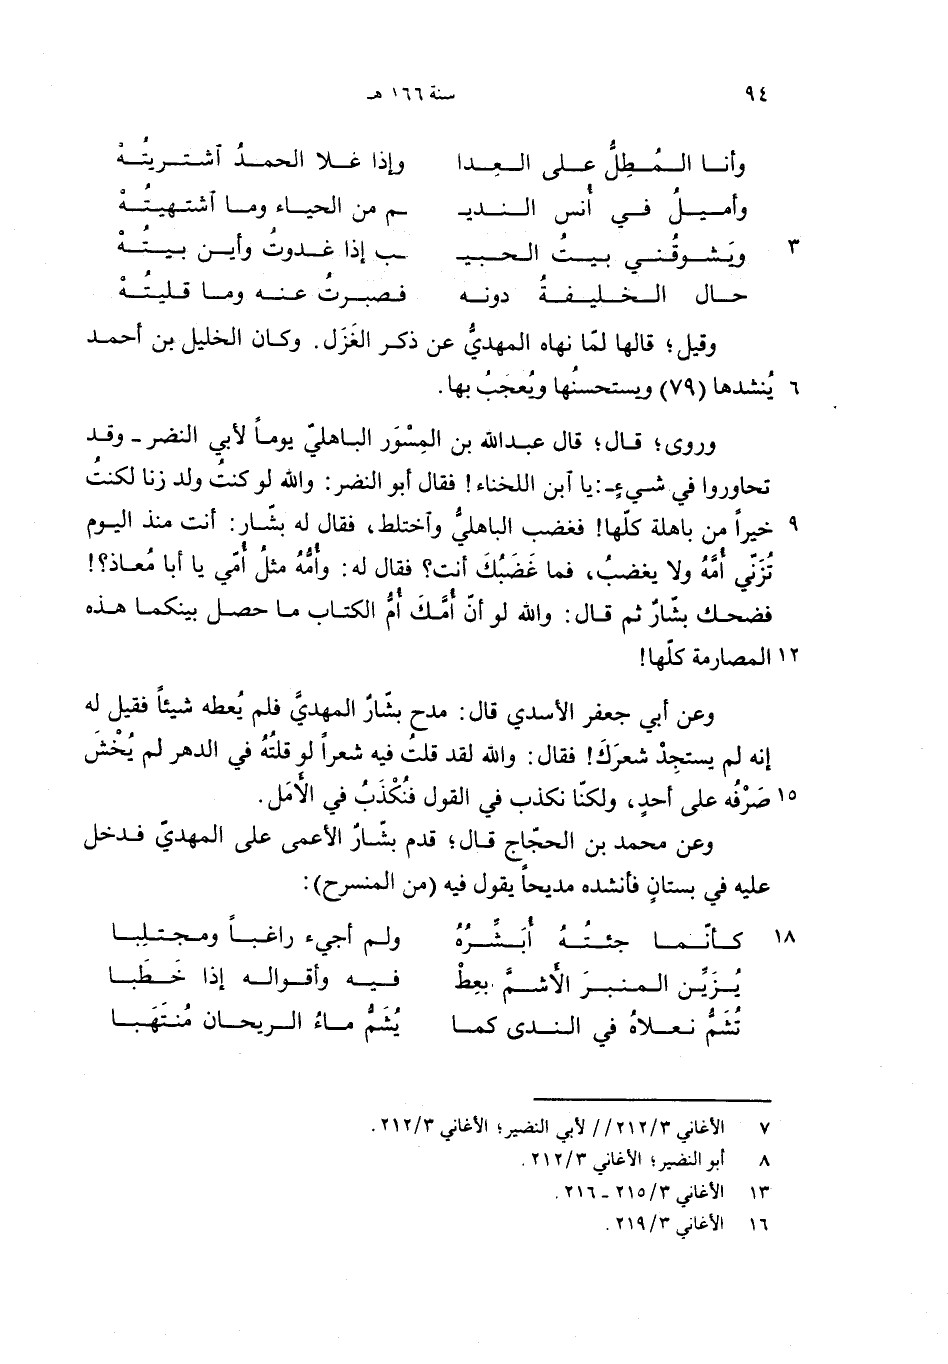 ٩٤ سنة ١٦٦ هـ
وأنـا المُـطِلُّ علـى العـدا وإذا غـلا الحمـدُ ٱشـتـريـتُـهْ
وأميـلُ فـي أُنس النـديـ ـمِ من الحيـاء ومـا ٱشتهيـتُـهْ
٣ ويَشـوقُنـي بيـتُ الحبيـ ـبِ إذا غـدوتُ وأيـن بيـتُـهْ
حـال الخليفـةُ دونـه فصبـرتُ عنـه ومـا قليتُـهْ
وقيل؛ قالها لمّا نهاه المهديُّ عن ذكر الغَزَل. وكان الخليل بن أحمد
٦ يُنشدها (٧٩) ويستحسنُها ويُعجَبُ بها.
وروى؛ قال؛ قال عبدالله بن المِسْوَر الباهليّ يوماً لأبي النضر ـ وقد
تحاوروا في شيءٍ ـ: يا ٱبن اللخناء! فقال أبو النضر: والله لو كنتُ ولد زنا لكنتُ
٩ خيراً من باهلة كلّها! فغضب الباهليُّ وٱختلط، فقال له بشّار: أنت منذ اليوم
تُزَنّي أُمَّهُ ولا يغضبُ، فما غَضَبُكَ أنت؟ فقال له: وأُمُّهُ مثلُ أُمّي يا أبا مُعاذ؟!
فضحك بشّارٌ ثم قال: والله لو أنّ أُمَّكَ أُمُّ الكتاب ما حصل بينكما هذه
١٢ المصارمة كلّها!
وعن أبي جعفر الأسدي قال: مدح بشّارٌ المهديَّ فلم يُعطه شيئاً فقيل له
إنه لم يستجِدْ شعرَكَ! فقال: والله لقد قلتُ فيه شعراً لو قلتُهُ في الدهر لم يُخْشَ
١٥ صَرْفُه على أحدٍ، ولكنّا نكذب في القول فنُكْذَبُ في الأَمَل.
وعن محمد بن الحجّاج قال؛ قدم بشّارٌ الأعمى على المهديّ فدخل
عليه في بستانٍ فأنشده مديحاً يقول فيه (من المنسرح):
١٨ كـأنّمـا جئتُـهُ أُبَـشّـرُهُ ولـم أجيء راغبـاً ومجتلبـا
يُـزَيِّـن المنبـرَ الأَشـمَّ بعِطْـ فـيـه وأقـوالـه إذا خَـطَبـا
تُشَمُّ نعـلاهُ في النـدى كمـا يُشَمُّ مـاءُ الريحـان مُنْتَهَبـا
٧ الأغاني ٣/ ٢١٢// لأبي النضير؛ الأغاني ٣/ ٢١٢.
٨ أبو النضير؛ الأغاني ٣/ ٢١٢.
١٣ الأغاني ٣/ ٢١٥ ـ ٢١٦.
١٦ الأغاني ٣/ ٢١٩.